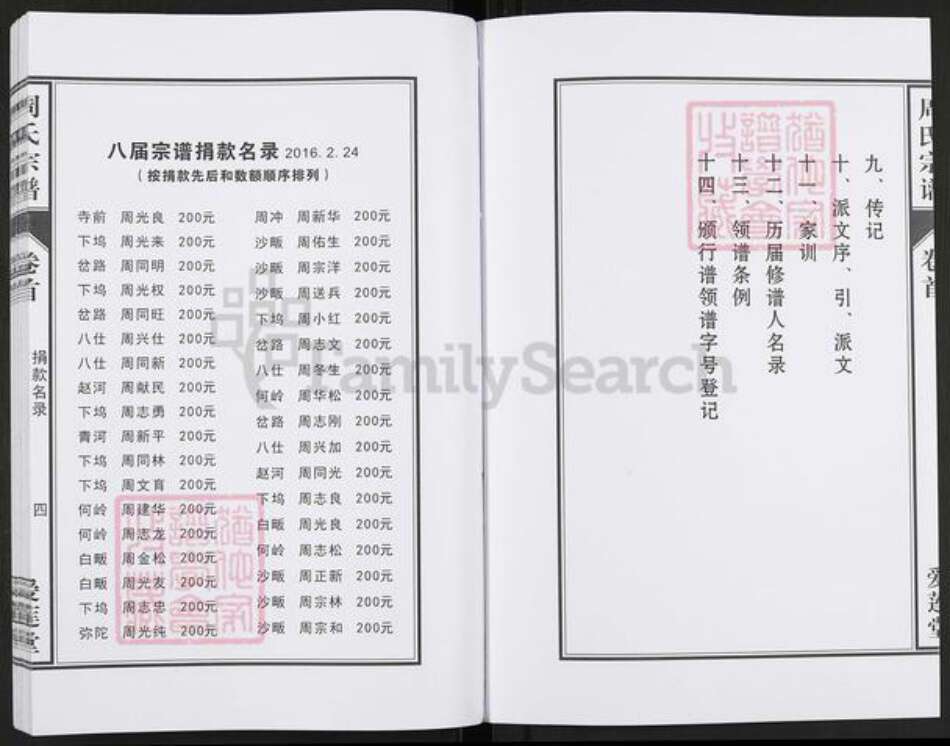 周氏宗谱
卷首
捐款名录
四
爱莲堂
八届宗谱捐款名录 2016.2.24
（按捐款先后和数额顺序排列）
寺前 周光良 200元
下坞 周光来 200元
岔路 周同明 200元
下坞 周光权 200元
岔路 周同旺 200元
八仕 周兴仕 200元
八仕 周同新 200元
赵河 周献民 200元
下坞 周志勇 200元
青河 周新平 200元
下坞 周同林 200元
下坞 周文育 200元
何岭 周建华 200元
何岭 周志龙 200元
白畈 周金松 200元
白畈 周光友 200元
下坞 周志忠 200元
弥陀 周光纯 200元
周冲 周新华 200元
沙畈 周佑生 200元
沙畈 周宗洋 200元
沙畈 周送兵 200元
下坞 周小红 200元
岔路 周志文 200元
八仕 周冬生 200元
何岭 周华松 200元
岔路 周志刚 200元
八仕 周兴加 200元
赵河 周同光 200元
下坞 周志良 200元
白畈 周光良 200元
何岭 周志松 200元
沙畈 周正新 200元
沙畈 周宗林 200元
沙畈 周宗和 200元
FamilySearch
周氏宗谱
卷首
爱莲堂
九、传记
十、派文序、引、派文
十一、家训
十二、历届修谱人名录
十三、领谱条例
十四、颁行谱领谱字号登记